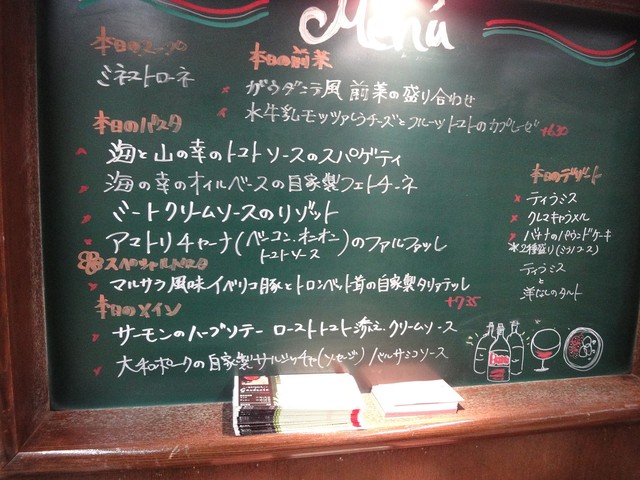 Menú
本日のスープ
ミネストローネ
本日の前菜
ガウダンテ風 前菜の盛り合わせ
水牛乳モッツァレラチーズとフルーツトマトのカプレーゼ +630
本日のパスタ
海と山の幸のトマトソースのスパゲティ
海の幸のオイルベースの自家製フェトチーネ
ミートクリームソースのリゾット
アマトリチャーナ(ベーコン、オニオン トマトソース)のファルファッレ
スペシャルパスタ
マルサラ風味イベリコ豚とトロンペット茸の自家製タリアテッレ
+735
本日のメイン
サーモンのハーブソテー ローストトマト添え クリームソース
大和ポークの自家製サルシッチャ(ソーセージ) バルサミコソース
本日のデザート
ティラミス
クレマキャラメル
バナナのパウンドケーキ
※2種盛り(ミラノコース)
ティラミス
と
洋なしのタルト